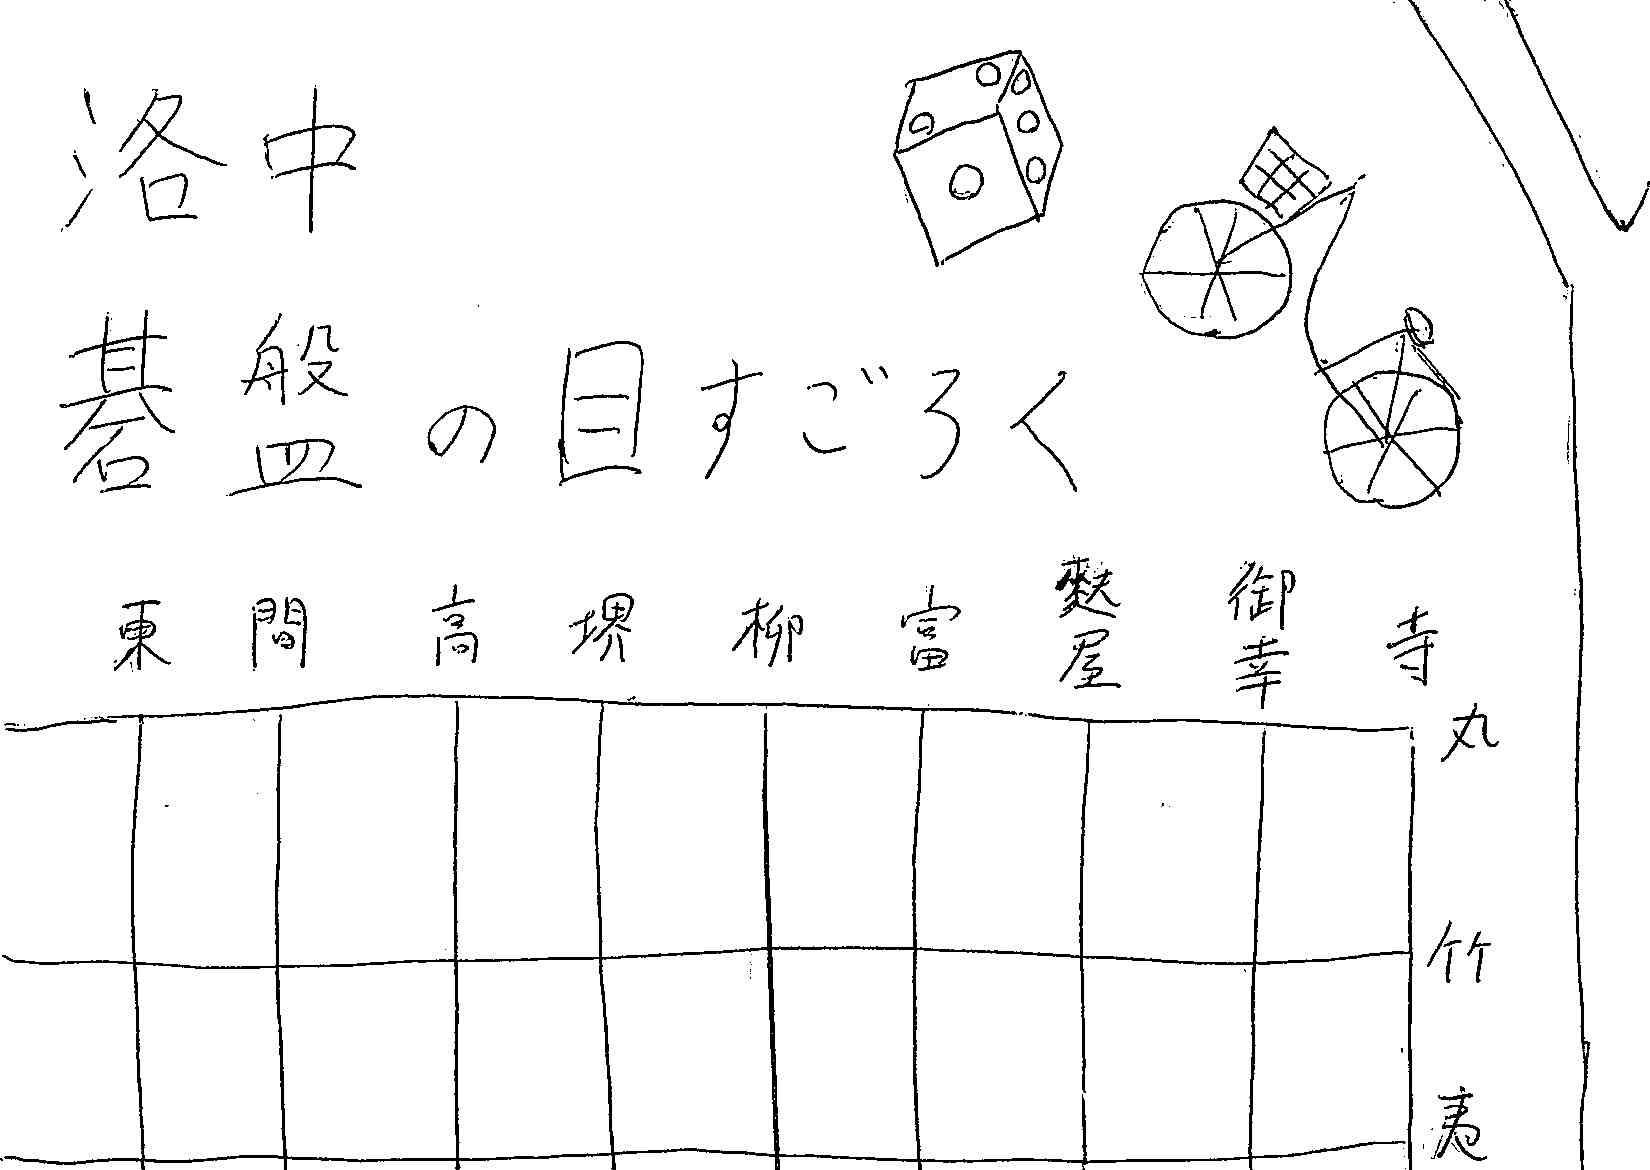 洛中
碁盤の目すごろく
東 間 高 堺 柳 富 麩屋 御幸 寺
丸
竹
夷